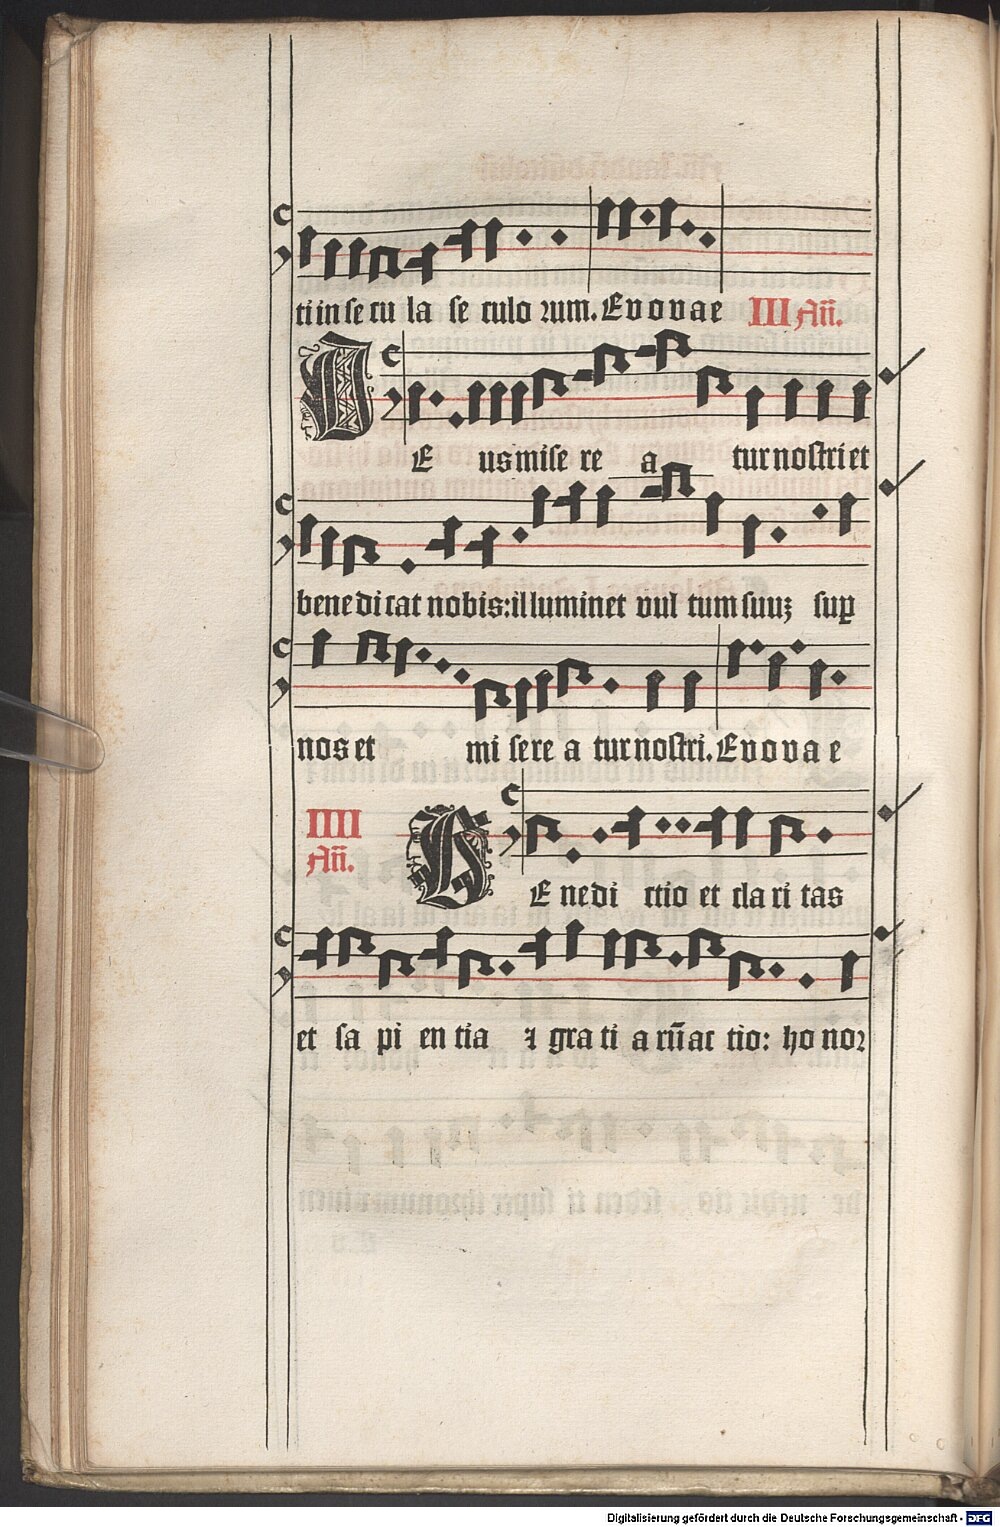 ti in se cu la se culo ꝛum. Evovae III Añ.
DE us mise re a tur nostri et
bene di cat nobis: illuminet vul tum suuꝫ suꝑ
nos et mi sere a tur nostri. Evovae
IIII
Añ.
BE nedi ctio et cla ri tas
et sa pi en tia ⁊ gra ti a rū̃ ac tio: ho noꝛ
Digitalisierung gefördert durch die Deutsche Forschungsgemeinschaft - DFG